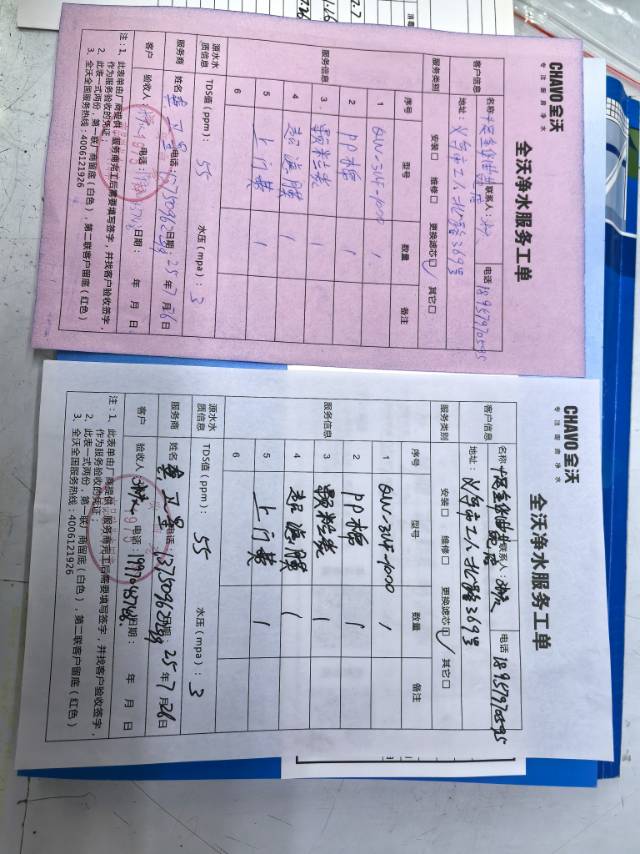 CHAVO全沃
专注厨房净水
全沃净水服务工单
客户信息
名称:
联系人:
电话
18957970595
地址: 义乌市工人北路369号
服务类别
安装□ 维修□ 更换滤芯☑ 其它□
服务信息
序号 型号 数量 备注
1 1
2 PP棉 1
3 颗粒炭 1
4 超滤膜 1
5 上门费 1
6
源水水质信息
TDS值(ppm): 55 水压(mpa): 3
服务商 姓名 电话: 日期: 25年7月26日
客户 验收人: 电话: 日期: 年 月 日
注:1、此表单由厂商提供,服务商完工后需要填写签字,并找客户验收签字,
作为服务验收的凭证;
2、此表一式两份,第一联厂商留底(白色),第二联客户留底(红色)
3、全沃全国服务热线:4006121926
CHAVO全沃
专注厨房净水
全沃净水服务工单
客户信息
名称:
联系人:
电话
18957970595
地址: 义乌市工人北路369号
服务类别
安装□ 维修□ 更换滤芯☑ 其它□
服务信息
序号 型号 数量 备注
1 1
2 PP棉 1
3 颗粒炭 1
4 超滤膜 1
5 上门费 1
6
源水水质信息
TDS值(ppm): 55 水压(mpa): 3
服务商 姓名 电话: 日期: 25年7月26日
客户 验收人: 电话: 日期: 年 月 日
注:1、此表单由厂商提供,服务商完工后需要填写签字,并找客户验收签字,
作为服务验收的凭证;
2、此表一式两份,第一联厂商留底(白色),第二联客户留底(红色)
3、全沃全国服务热线:4006121926